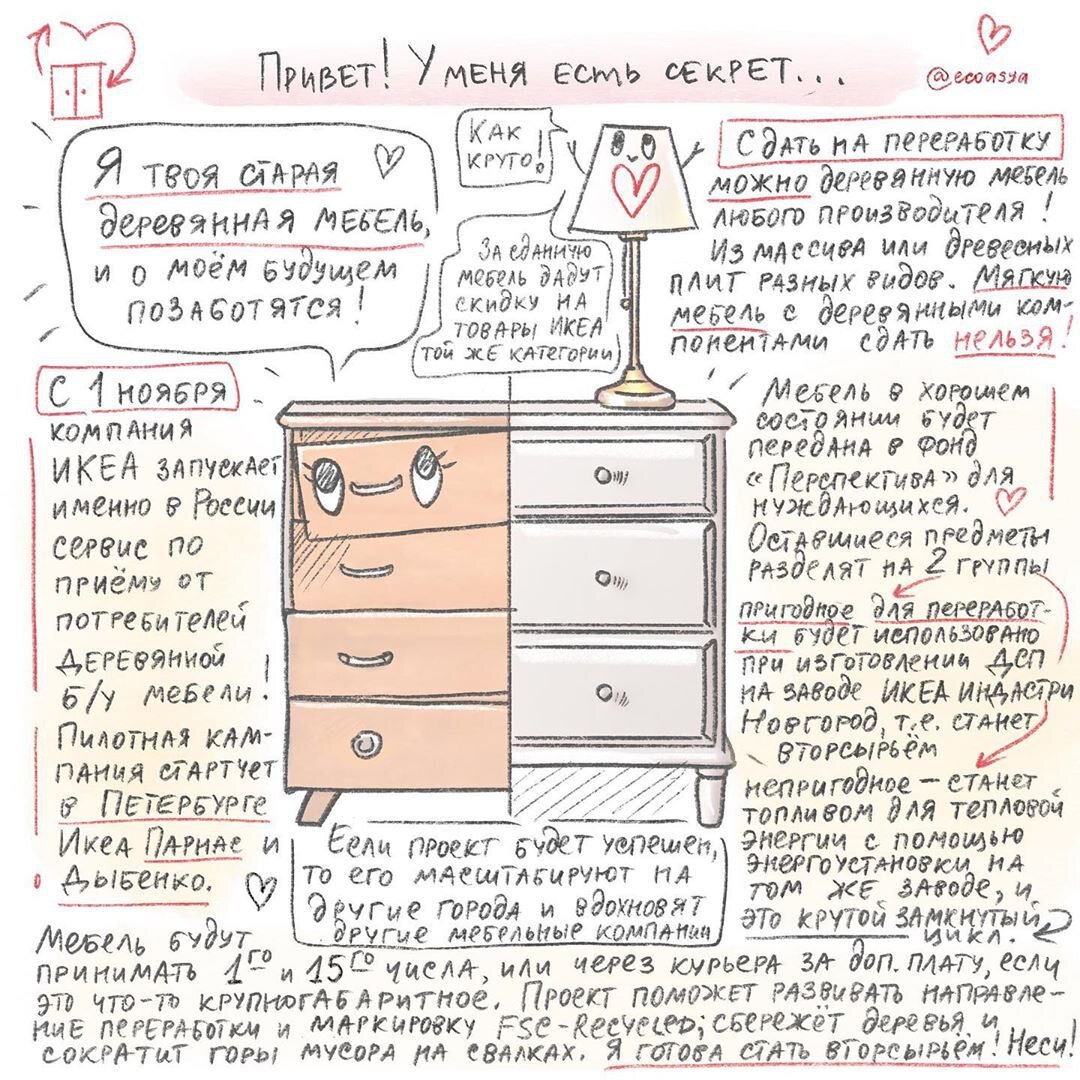 Привет! У меня есть секрет...
@ecoasya
Я твоя старая
деревянная мебель,
и о моём будущем
позаботятся!
Как
круто!
За сданную
мебель дадут
скидку на
товары ИКЕА
той же категории
Сдать на переработку
можно деревянную мебель
любого производителя!
Из массива или древесных
плит разных видов. Мягкую
мебель с деревянными ком-
понентами сдать нельзя!
С 1 ноября
компания
ИКЕА запускает
именно в России
сервис по
приёму от
потребителей
деревянной
б/у мебели!
Пилотная кам-
пания стартует
в Петербурге
Икеа Парнас и
Дыбенко.
Мебель в хорошем
состоянии будет
передана в фонд
«Перспектива» для
нуждающихся.
Оставшиеся предметы
разделят на 2 группы
пригодное для переработ-
ки будет использовано
при изготовлении ДСП
на заводе ИКЕА Индастри
Новгород, т.е. станет
вторсырьём
непригодное — станет
топливом для тепловой
энергии с помощью
энергоустановки на
том же заводе, и
это крутой замкнутый
цикл.
Если проект будет успешен,
то его масштабируют на
другие города и вдохновят
другие мебельные компании
Мебель будут
принимать 1го и 15го числа, или через курьера за доп. плату, если
это что-то крупногабаритное. Проект поможет развивать направле-
ние переработки и маркировку FSC-Recycled; сбережёт деревья и
сократит горы мусора на свалках. Я готова стать вторсырьём! Неси!